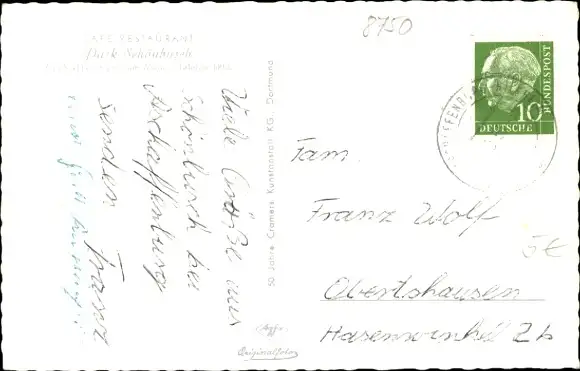 8750
CAFE RESTAURANT
Park Schönbusch
Viele Grüße aus
Schönbusch bei
Aschaffenburg
senden Franz
50 Jahre Cramers Kunstanstalt KG., Dortmund
Originalfoto
10
DEUTSCHE
BUNDESPOST
Fam.
Franz Wolf
5€
Obertshausen
Hasenwinkel 2b